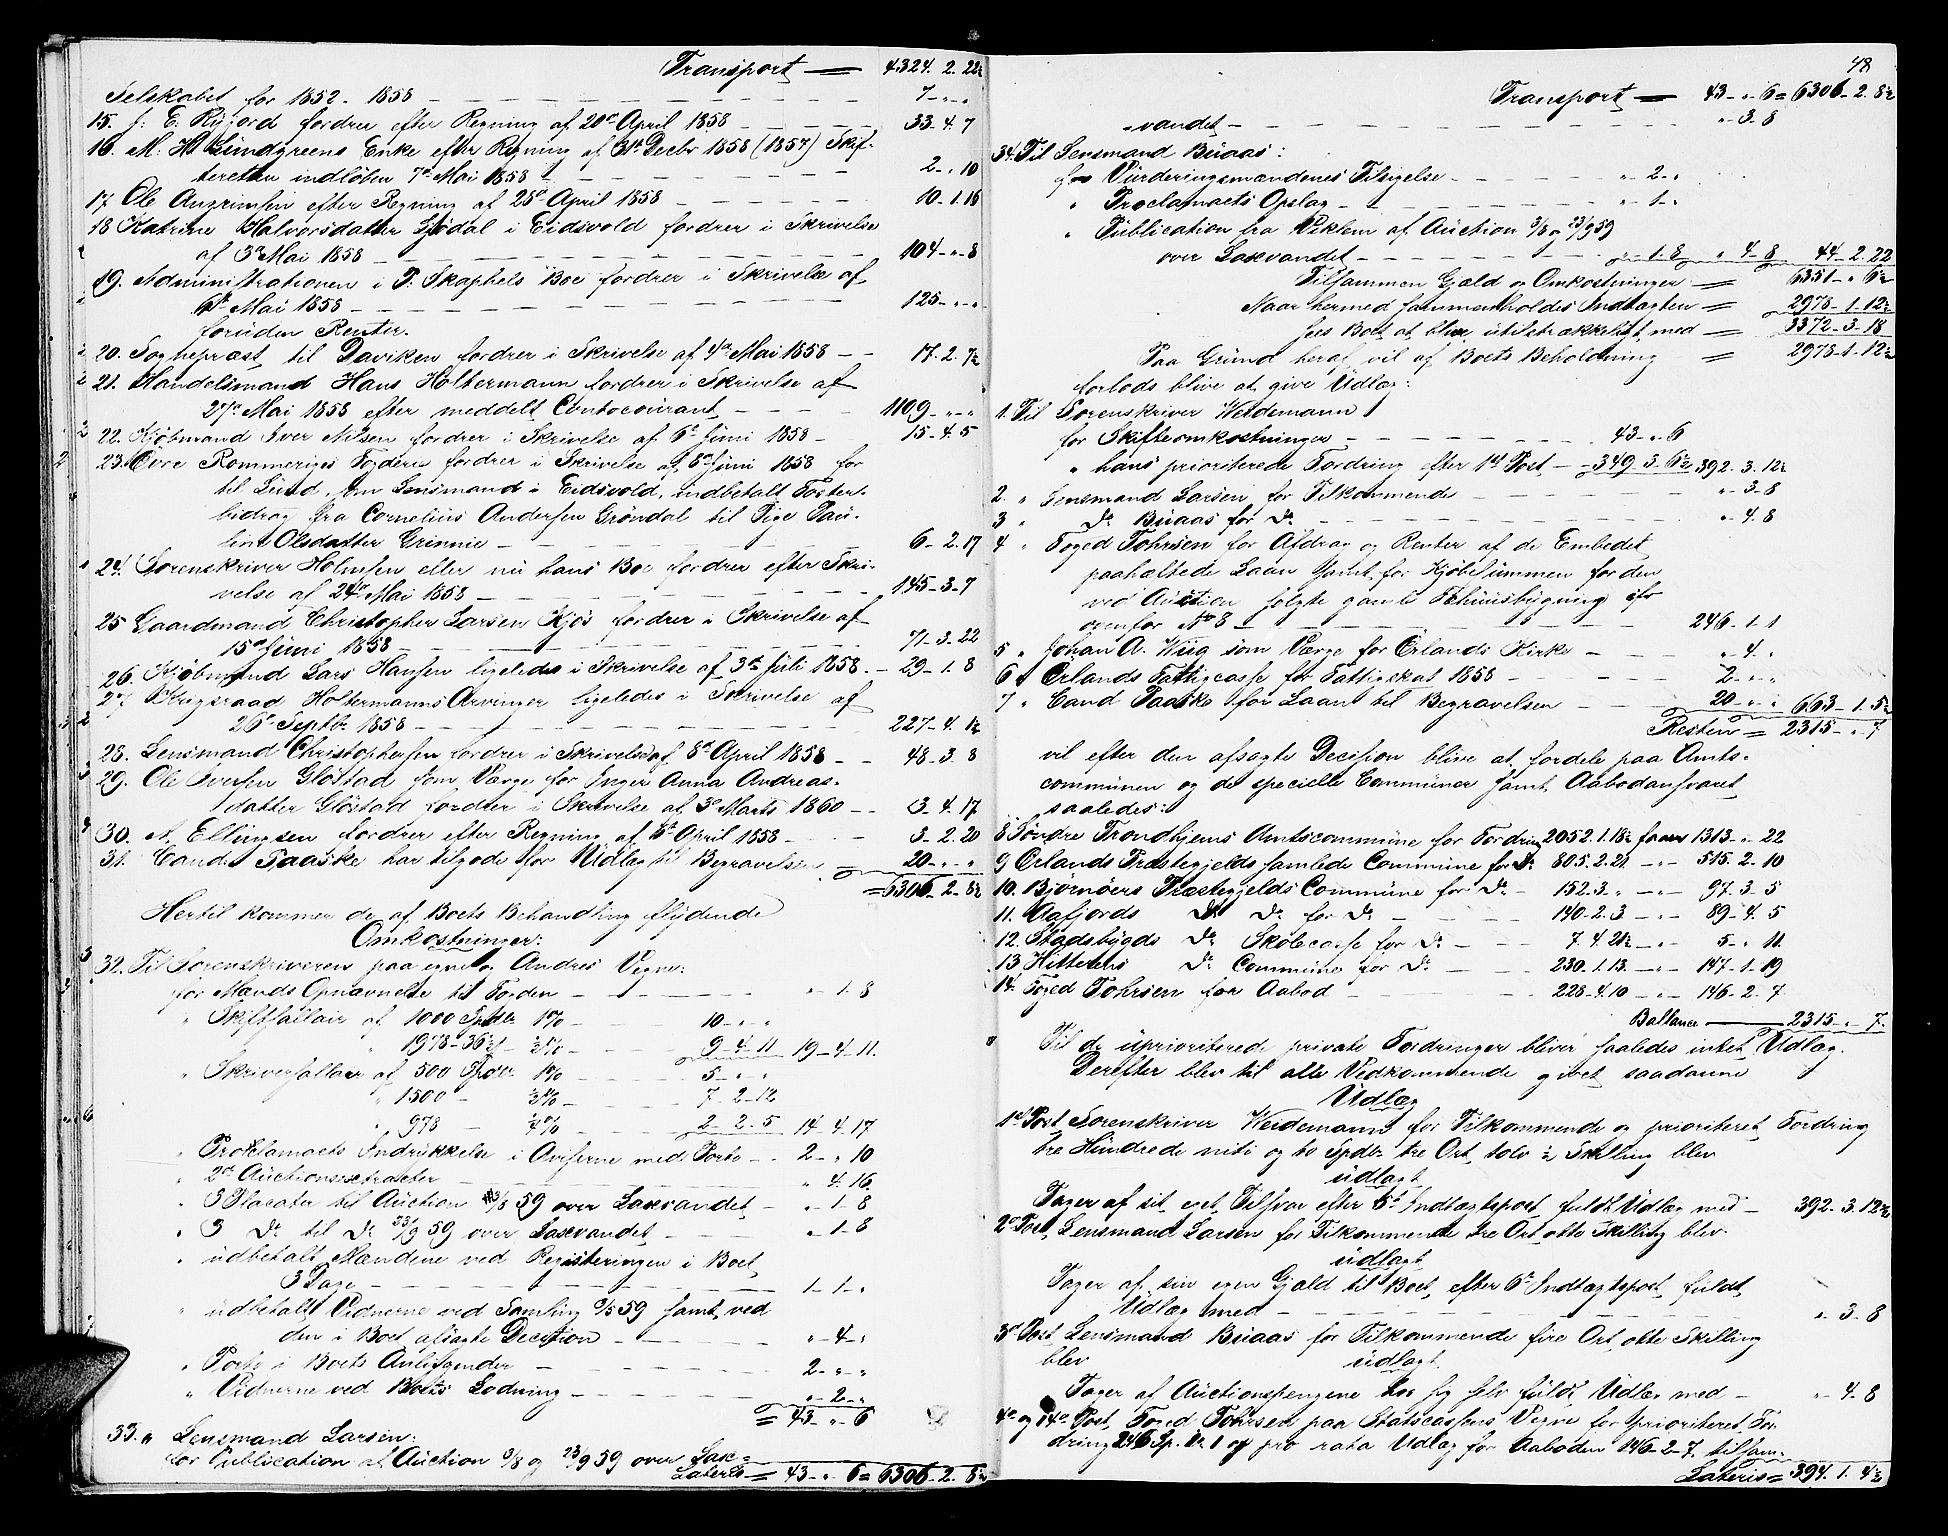 Transport — 4324. 2. 22½
Selskabet for 1852-1858 — 7 - " - "
15. J. E. Rifjord fordrer efter Regning af 20de April 1858 — 33-4-7
16. M. H. Lundgreens Enke efter Regning af 31te Decbr 1858 (1857) Skif-
teretten indløben 7de Mai 1858 — 2 - " 10
17 Ole Anzrimsen efter Regning af 28de April 1858 — 10-1-16
18 Katrine Halvorsdatter Gjødal i Eidsvold fordrer i Skrivelse
af 3de Mai 1858 — 104-"-8
19. Administrationen i P. Skaphels Boe fordrer i Skrivelse af
6te Mai 1858 — 125-"-"
foruden Renter.
20. Sognepræst til Daviken fordrer i Skrivelse af 4de Mai 1858 — 17-2-7½
21. Handelsmand Hans Holtermann fordrer i Skrivelse af
27de Mai 1858 efter meddelt Contocourant — 1109-"-"
22. Kjøbmand Iver Nilsen fordrer i Skrivelse af 6te Juni 1858 — 15-4-5
23. Øvre Rommeriges Fogderie fordrer i Skrivelse af 8de Juni 1858 for
til Lund, som Lensmand i Eidsvold, indbetalt Foster-
bidrag fra Cornelius Andersen Grøndal til Pige Pau-
line Olsdatter Grinnie — 6-2-17
24. Sorenskriver Holmsen eller nu hans Boe fordrer efter Skri-
velse af 24de Mai 1858 — 145-3-7
25 Gaardmand Christopher Larsen Kjøs fordrer i Skrivelse af
15de Juni 1858 — 71-3-22
26. Kjøbmand Lars Hansen ligeledes i Skrivelse af 3die Juli 1858 — 29-1-8
27 Krigsraad Holtermanns Arvinger ligeledes i Skrivelse af
26de Septbr 1858 — 227-4-1½
28. Lensmand Christophersen fordrer i Skrivelse af 8de April 1858 — 48-3-8
29. Ole Iversen Gløstad som Værge for Inger Anna Andreas-
datter Gløstad fordrer i Skrivelse af 3de Marts 1860 — 13-4-17
30. A. Ellingsen fordrer efter Regning af 5te April 1858 — 3-2-20
31. Cand: Paaske har tilgode for Udlæg til Begravelsen — 20-"-"
= 6306-2-8½
Hertil kommer de af Boets Behandling flydende
Omkostninger:
32. Til Sorenskriveren paa egne og Andres Vegne:
for Mænds Opnavnelse til Fogden — " - 1-8
" Skiftsallair af 1000 Spdlr 1% — 10-"-"
" 1978-36½ ½% — 9-4-11 19-4-11.
" Skriversallair af 500 Spdlr 1% — 5-"-"
" 1500 - ½% — 7-2-12
" 978 - ¼% — 2-2-5 14-4-17
" Proklamaets Indrykkelse i Aviserne med Porto — 2-"-10
" 2de Auctionsextracter — " 4-16.
" 3 Placater til Auction 3/8 59 over Laxevandet — "-1-8
" 3 Do til Do 23/9 59 over Laxevandet — "-1-8
" udbetalt Mændene ved Registeringen i Boet
3 Dage — 1-1-"
" udbetalt Vidnerne ved Samling 9/5 59 samt ved
den i Boet afsagte Decision — "-4-"
" Porto i Boets Anliggender — 2-"-"
" Vidnerne ved Boets Slutning — "-2-"
= 43-"-6
33. " Lensmand Larsen:
for Publication af Auction 3/8 og 23/9 59 over Laxe-
Lateris = 43-"-6 = 6306-2-8½
48
Transport — 43-"-6 = 6306-2-8½
-vandet — "-3-8
34. Til Lensmand Buaas:
for Vurderingsmændenes Tilsigelse — "-2-"
" Proclamaets Opslag — "-1-"
" Publication fra Viklem af Auction 3/8 og 23/9 59
over Laxevandet — "-1-8 "-4-8 44-2-22
Tilsammen Gjæld og Omkostninger = 6351-"-6½
Naar hermed sammenholdes Indtægten = 2978-1-12½
sees Boet at blive utilstrækkeligt med = 3372-3-18
Paa Grund heraf vil af Boets Beholdning = 2978-1-12½
forlods blive at give Udlæg:
1. Til Sorenskriver Weidemann
for Skifteomkostninger — 43-"-6
" hans prioriterede Fordring efter 1ste Post — 349-3-6½ 392-3-12½
2. " Lensmand Larsen for Tilkommende — "-3-8
3 " Do Buaas for Do — "-4-8
4 " Foged Tohrsen for Afdrag og Renter af de Embedet
paahæftede Laan samt for Kjøbesummen for den
ved Auction solgte gamle Thinusbygning cfr
ovenfor No 8 — 246-1-1
5 " Johan A. Wiig som Værge for Ørlands Kirke — "-4-"
6 " Ørlands Fattigcasse for Fattigskat 1858 — 2-"-"
7 " Cand Paaske for Laan til Begravelsen — 20-"-" 663-1-5½
Resten = 2315-"-7
vil efter den afsagte Decision blive at fordele paa Amts-
communen og de specielle Communer samt Aabodansvaret
saaledes:
8 Søndre Trondhjems Amtscommune for Fordring 2052-1-18½ faaer 1313-"-22
9 Ørlands Præstegjelds samlede Commune for Do 805-2-21 — " — 515-2-10
10. Bjørnøers Præstegjelds Commune for Do — 152-3-" — " — 97-3-5
11. Aafjords Do Do for Do — 140-2-3 — " — 89-4-5
12. Stadsbygds Do Skolecasse for Do — 7-4-21½ — " — 5-"-11
13 Hitterens Do Commune for Do — 230-1-13 — " — 147-1-19
14. Foged Tohrsen for Aabod — 228-4-10 — " — 146-2-7
Ballance — 2315-"-7
Til de uprioriterede private Fordringer bliver saaledes intet Udlæg.
Derefter blev til alle Vedkommende givet saadanne
Udlæg
1ste Post Sorenskriver Weidemann for Tilkommende og prioriteret Fordring
tre Hundrede niti og to Spdlr tre Ort, tolv ½ Skilling blev
udlagt
Tager af sit eget Tilsvar efter 5te Indtægtspost fuldt Udlæg med — 392-3-12½
2den Post, Lensmand Larsen for Tilkommende tre Ort otte Skilling blev
udlagt
Tager af sin egen Gjæld til Boet, efter 6te Indtægtspost, fuldt
Udlæg med — "-3-8
3die Post Lensmand Buaas for Tilkommende fire Ort otte Skilling
blev udlagt
Tager af Auctionspengene hos sig selv fuldt Udlæg med — "-4-8
4de og 14de Post, Foged Tohrsen paa Statscassens Vegne for prioriteret For-
dring 246 Sp. 1 Ort 1 og pro rata Udlæg for Aaboden 146-2-7, tilsam-
Lateris = 394-1-4½